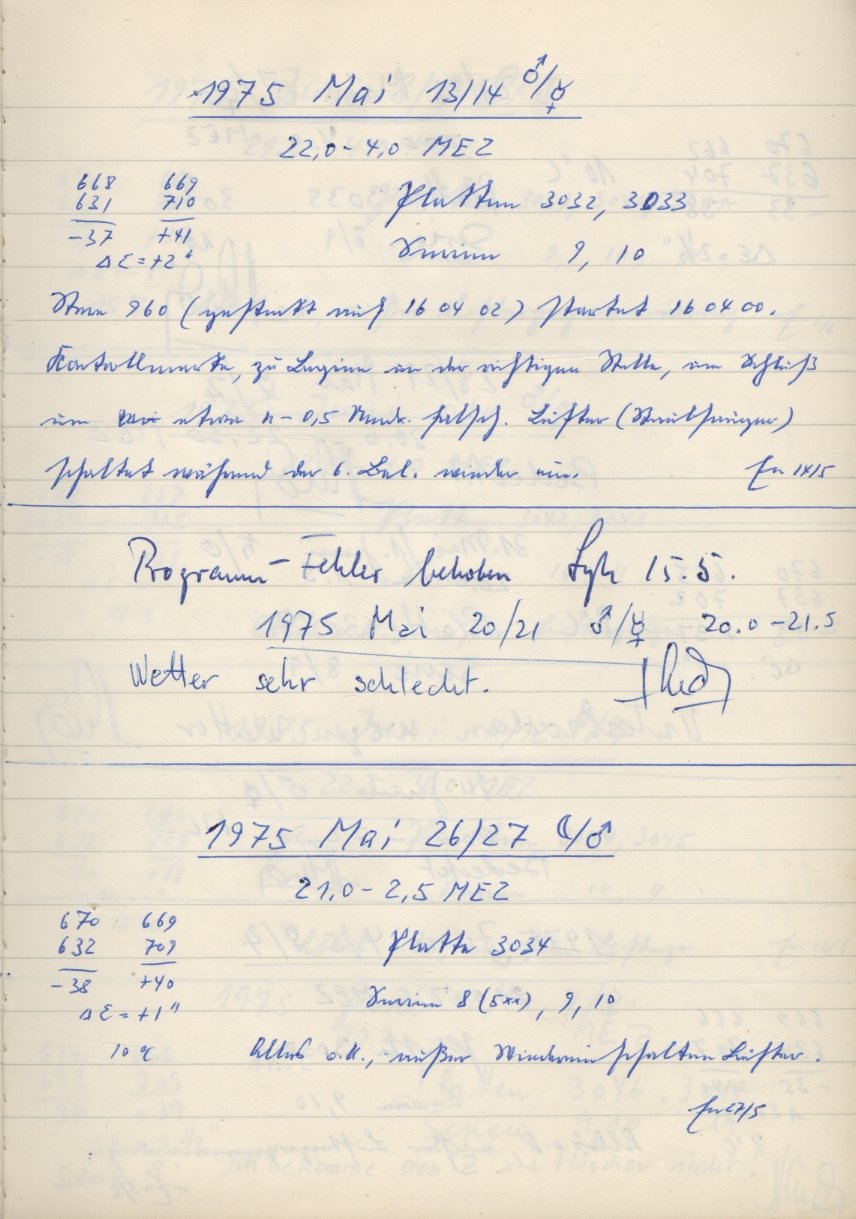 1975 Mai 13/14 ♂/☿
22,0 - 4,0 MEZ
668 669
631 710 Platten 3032, 3033
-37 +41
Δε = +2" Serien 9, 10
Stern 960 (gestartet auf 16 04 02) startet 16 04 00.
Kontrollmarke, zu Beginn an der richtigen Stelle, am Schluß
um etwa n - 0,5 falsch. Lüfter (Staubsauger)
schaltet während der 6. Bel. wieder ein. 14/5
Programm-Fehler behoben 15.5.
1975 Mai 20/21 ♂/☿ 20.0 - 21.5
Wetter sehr schlecht.
1975 Mai 26/27 ☾/♂
21,0 - 2,5 MEZ
670 669
632 709 Platte 3034
-38 +40
Δε = +1" Serien 8 (5xx), 9, 10
10 °C Alles o.k., außer Wiedereinschalten Lüfter.
27/5